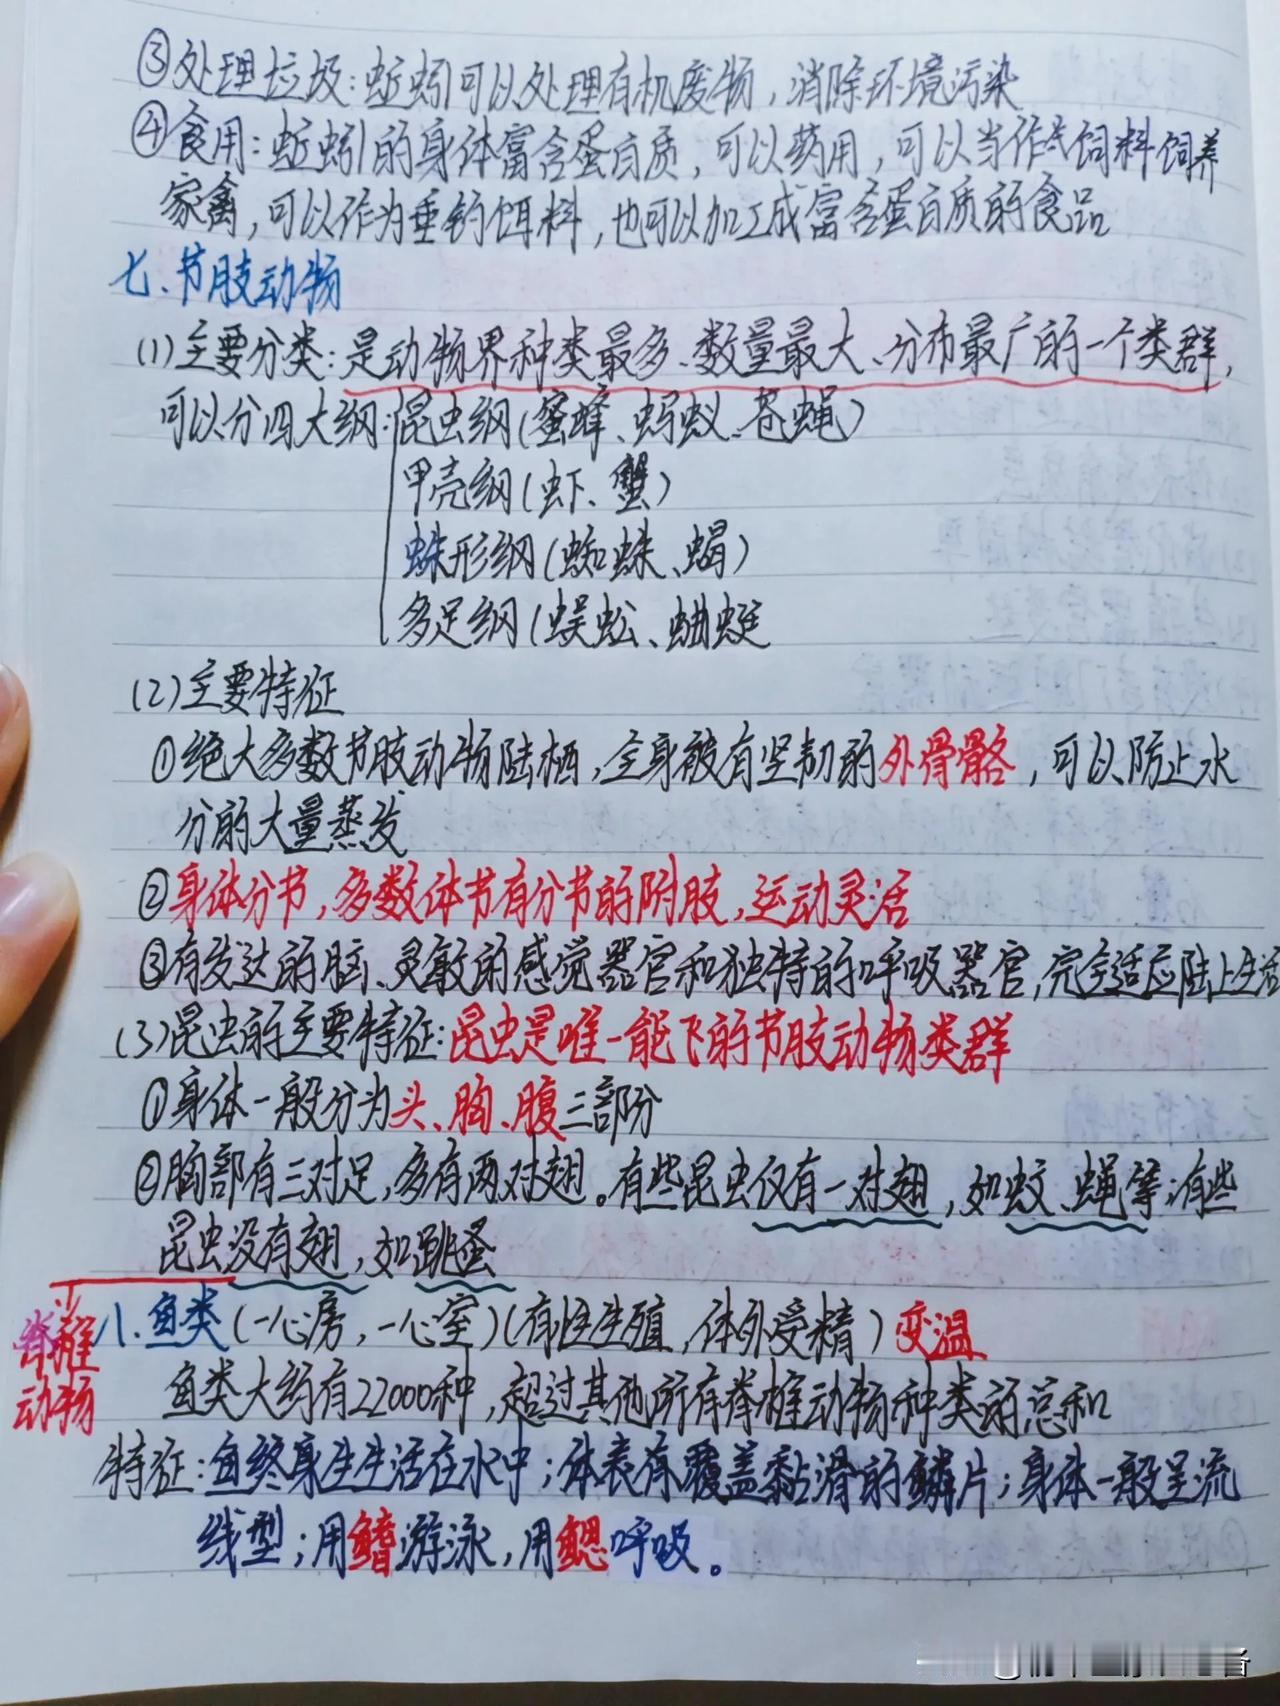 ③处理垃圾：蚯蚓可以处理有机废物，消除环境污染
④食用：蚯蚓的身体富含蛋白质，可以药用，可以当作饲料饲养
家禽，可以作为垂钓饵料，也可以加工成富含蛋白质的食品
七、节肢动物
(1)主要分类：是动物界种类最多、数量最大、分布最广的一个类群，
可以分四大纲：昆虫纲(蜜蜂、蚂蚁、苍蝇)
甲壳纲(虾、蟹)
蛛形纲(蜘蛛、蝎)
多足纲(蜈蚣、蚰蜒
(2)主要特征
①绝大多数节肢动物陆栖，全身被有坚韧的外骨骼，可以防止水
分的大量蒸发
②身体分节，多数体节有分节的附肢，运动灵活
③有发达的脑、灵敏的感觉器官和独特的呼吸器官，完全适应陆上生活
(3)昆虫的主要特征：昆虫是唯一能飞的节肢动物类群
①身体一般分为头、胸、腹三部分
②胸部有三对足，多有两对翅。有些昆虫仅有一对翅，如蚊、蝇等；有些
昆虫没有翅，如跳蚤
脊椎
动物
八、鱼类(一心房，一心室)(有性生殖，体外受精)变温
鱼类大约有22000种，超过其他所有脊椎动物种类的总和
特征：鱼终身生活在水中；体表有覆盖黏滑的鳞片；身体一般呈流
线型；用鳍游泳，用鳃呼吸。